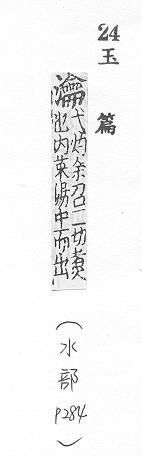 24玉篇
瀹弋灼余召二切煑
也内菜湯中而出
(水部P284)